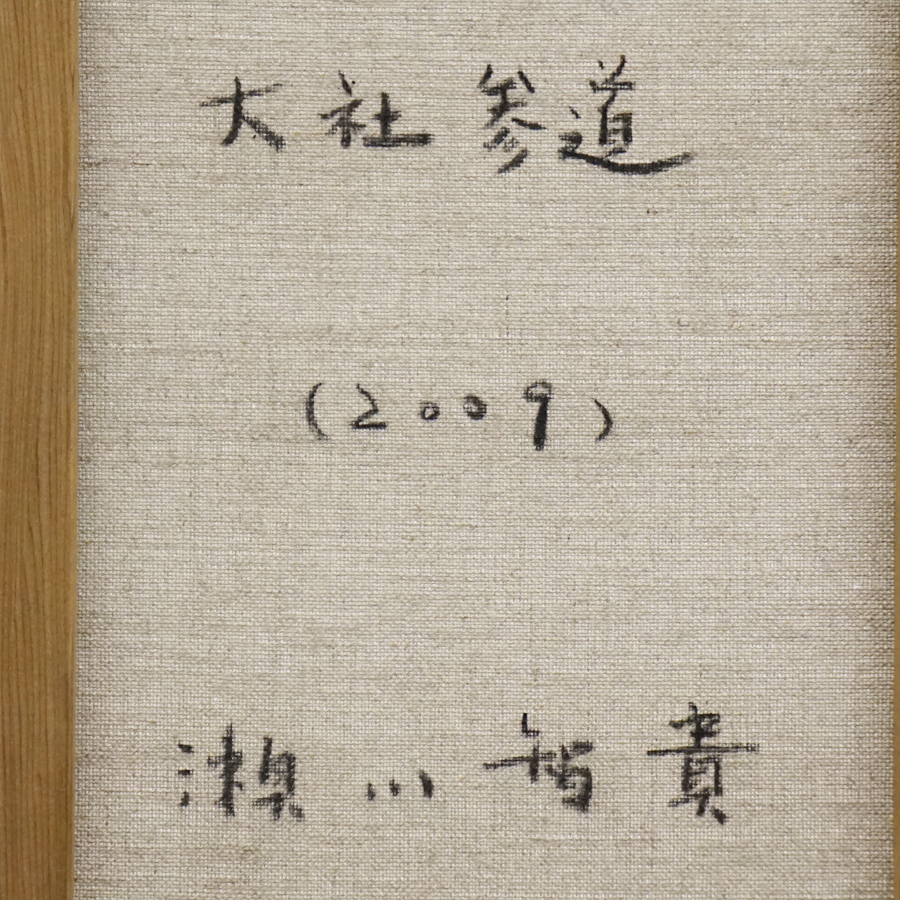 大社参道
(2009)
瀬川智貴